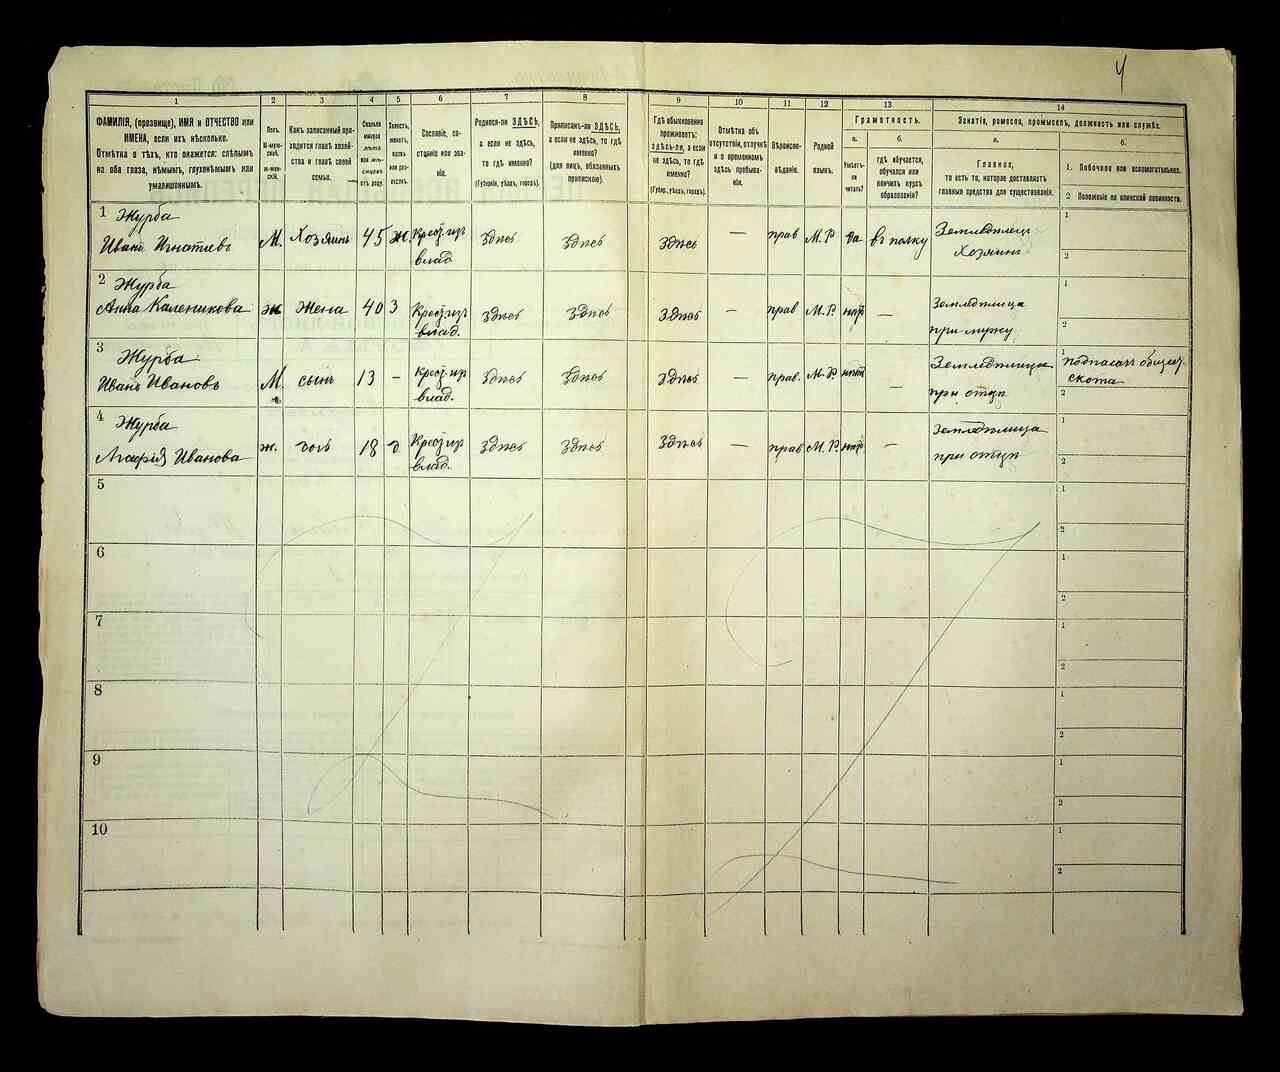 4
1
2
3
4
5
6
7
8
9
10
11
12
13
14
ФАМИЛІЯ, (прозвище), ИМЯ и ОТЧЕСТВО или
ИМЕНА, если ихъ нѣсколько.
Отмѣтка о тѣхъ, кто окажется: слѣпымъ
на оба глаза, нѣмымъ, глухонѣмымъ или
умалишоннымъ.
Полъ.
М-муж-
ской.
Ж-жен-
скій.
Какъ записанный при-
ходится главѣ хозяй-
ства и главѣ своей
семьи.
Сколько
минуло
лѣтъ
или мѣ-
сяцевъ
отъ роду.
Холостъ,
женатъ,
вдовъ
или раз-
веденъ.
Сословіе, со-
стояніе или зва-
ніе.
Родился-ли ЗДѢСЬ,
а если не здѣсь,
то гдѣ именно?
(Губернія, уѣздъ, городъ).
Приписанъ-ли ЗДѢСЬ,
а если не здѣсь, то гдѣ
именно?
(для лицъ, обязанныхъ
припискою).
Гдѣ обыкновенно
проживаетъ:
здѣсь-ли, а если
не здѣсь, то гдѣ
именно?
(Губер., уѣздъ, городъ).
Отмѣтка объ
отсутствіи, отлучкѣ
и о временномъ
здѣсь пребыва-
ніи.
Вѣроиспо-
вѣданіе.
Родной
языкъ.
Грамотность.
а.
Умѣетъ-
ли
читать?
б.
гдѣ обучается,
обучался или
кончилъ курсъ
образованія?
Занятія, ремесло, промыселъ, должность или служба.
а.
Главное,
то есть то, которое доставляетъ
главныя средства для существованія.
б.
1. Побочное или вспомогательное.
2 Положеніе по воинской повинности.
1 Журба
Иванъ Игнатіевъ М. Хозяинъ 45 ж. Крест. изъ влад. Здѣсь Здѣсь Здѣсь — прав М.Р. да въ полку Земледѣлецъ Хозяинъ
1
2
2 Журба
Анна Каленикова ж Жена 40 З Крест. изъ влад. Здѣсь Здѣсь Здѣсь — прав М.Р. нѣт — Земледѣлица при мужу
1
2
3 Журба
Иванъ Ивановъ М. сынъ 13 - Крест. изъ влад. Здѣсь Здѣсь Здѣсь — прав. М.Р. нѣт — при отцѣ
1 подпасачъ общест. скота
2
4 Журба
Агафія Иванова ж. дочь 18 д Крест. изъ влад. Здѣсь Здѣсь Здѣсь — прав М.Р. нѣт — Земледѣлица при отцѣ
1
2
5
1
2
6
1
2
7
1
2
8
1
2
9
1
2
10
1
2